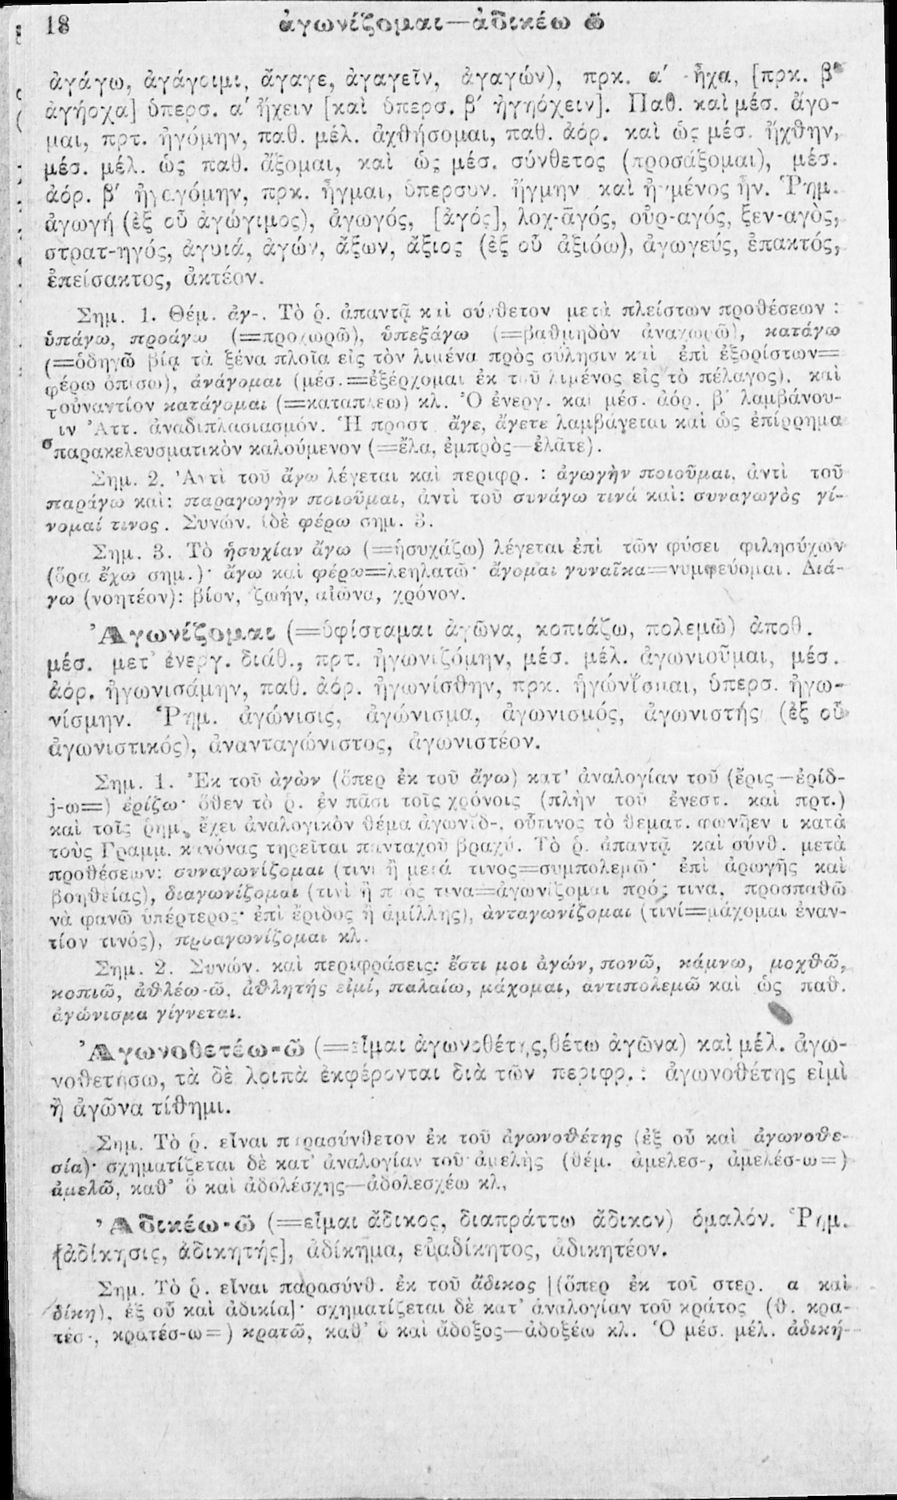 18 ἀγωνίζομαι—ἀδικέω ῶ
ἀγάγω, ἀγάγοιμι, ἄγαγε, ἀγαγεῖν, ἀγαγών), πρκ. α′ ἦχα, [πρκ. β′
ἀγήοχα] ὑπερσ. α′ ἤχειν [καὶ ὑπερσ. β′ ἠγηόχειν]. Παθ. καὶ μέσ. ἄγο-
μαι, πρτ. ἠγόμην, παθ. μέλ. ἀχθήσομαι, παθ. ἀόρ. καὶ ὡς μέσ. ἤχθην,
μέσ. μέλ. ὡς παθ. ἄξομαι, καὶ ὡς μέσ. σύνθετος (προσάξομαι), μέσ.
ἀόρ. β′ ἠγαγόμην, πρκ. ἦγμαι, ὑπερσυν. ἤγμην καὶ ἠγμένος ἦν. Ῥημ.
ἀγωγή (ἐξ οὗ ἀγώγιμος), ἀγωγός, [ἀγός], λοχ-ᾱγός, οὐρ-αγός, ξεν-αγὸς,
στρατ-ηγός, ἀγυιά, ἀγών, ἄξων, ἄξιος (ἐξ οὗ ἀξιόω), ἀγωγεύς, ἐπακτός,
ἐπείσακτος, ἀκτέον.
Σημ. 1. Θέμ. ἀγ-. Τὸ ῥ. ἀπαντᾷ καὶ σύνθετον μετὰ πλείστων προθέσεων :
ὑπάγω, προάγω (=προχωρῶ), ὑπεξάγω (=βαθμηδὸν ἀναχωρῶ), κατάγω
(=ὁδηγῶ βίᾳ τὰ ξένα πλοῖα εἰς τὸν λιμένα πρὸς σύλησιν καὶ ἐπὶ ἐξορίστων=
φέρω ὀπίσω), ἀνάγομαι (μέσ.=ἐξέρχομαι ἐκ τοῦ λιμένος εἰς τὸ πέλαγος). καὶ
τοὐναντίον κατάγομαι (=καταπλέω) κλ. Ὁ ἐνεργ. καὶ μέσ. ἀόρ. β′ λαμβάνου-
σιν Ἀττ. ἀναδιπλασιασμόν. Ἡ προστ. ἄγε, ἄγετε λαμβάγεται καὶ ὡς ἐπίρρημα
παρακελευσματικὸν καλούμενον (=ἔλα, ἐμπρὸς—ἐλᾶτε).
Σημ. 2. Ἀντὶ τοῦ ἄγω λέγεται καὶ περιφρ. : ἀγωγὴν ποιοῦμαι, ἀντὶ τοῦ
παράγω καὶ: παραγωγὴν ποιοῦμαι, ἀντὶ τοῦ συνάγω τινά καὶ: συναγωγὸς γί-
νομαί τινος. Συνών. ἰδὲ φέρω σημ. 3.
Σημ. 3. Τὸ ἡσυχίαν ἄγω (=ἡσυχάζω) λέγεται ἐπὶ τῶν φύσει φιλησύχων
(ὅρα ἔχω σημ.)· ἄγω καὶ φέρω=λεηλατῶ· ἄγομαι γυναῖκα=νυμφεύομαι. Διά-
γω (νοητέον): βίον, ζωήν, αἰῶνα, χρόνον.
Ἀγωνίζομαι (=ὑφίσταμαι ἀγῶνα, κοπιάζω, πολεμῶ) ἀποθ.
μέσ. μετ' ἐνεργ. διάθ., πρτ. ἠγωνιζόμην, μέσ. μέλ. ἀγωνιοῦμαι, μέσ.
ἀόρ. ἠγωνισάμην, παθ. ἀόρ. ἠγωνίσθην, πρκ. ἠγώνῐσμαι, ὑπερσ. ἠγω-
νίσμην. Ῥημ. ἀγώνισις, ἀγώνισμα, ἀγωνισμός, ἀγωνιστής (ἐξ οὗ
ἀγωνιστικός), ἀνανταγώνιστος, ἀγωνιστέον.
Σημ. 1. Ἐκ τοῦ ἀγὼν (ὅπερ ἐκ τοῦ ἄγω) κατ' ἀναλογίαν τοῦ (ἔρις—ἐρίδ-
j-ω=) ἐρίζω· ὅθεν τὸ ῥ. ἐν πᾶσι τοῖς χρόνοις (πλὴν τοῦ ἐνεστ. καὶ πρτ.)
καὶ τοῖς ῥημ. ἔχει ἀναλογικὸν θέμα ἀγωνῐδ-, οὗτινος τὸ θεματ. φωνῆεν ι κατὰ
τοὺς Γραμμ. κανόνας τηρεῖται πανταχοῦ βραχύ. Τὸ ῥ. ἀπαντᾷ καὶ σύνθ. μετὰ
προθέσεων: συναγωνίζομαι (τινι ἢ μετά τινος=συμπολεμῶ· ἐπὶ ἀρωγῆς καὶ
βοηθείας), διαγωνίζομαι (τινὶ ἢ πρός τινα=ἀγωνίζομαι πρός τινα, προσπαθῶ
νὰ φανῶ ὑπέρτερος· ἐπὶ ἔριδος ἢ ἁμίλλης), ἀνταγωνίζομαι (τινί=μάχομαι ἐναν-
τίον τινός), προαγωνίζομαι κλ.
Σημ. 2. Συνών. καὶ περιφράσεις: ἔστι μοι ἀγών, πονῶ, κάμνω, μοχθῶ,
κοπιῶ, ἀθλέω-ῶ, ἀθλητής εἰμί, παλαίω, μάχομαι, αντιπολεμῶ καὶ ὡς παθ.
ἀγώνισμα γίγνεται.
Ἀγωνοθετέω-ῶ (=εἶμαι ἀγωνοθέτης, θέτω ἀγῶνα) καὶ μέλ. ἀγω-
νοθετήσω, τὰ δὲ λοιπὰ ἐκφέρονται διὰ τῶν περιφρ.: ἀγωνοθέτης εἰμὶ
ἢ ἀγῶνα τίθημι.
Σημ. Τὸ ῥ. εἶναι παρασύνθετον ἐκ τοῦ ἀγωνοθέτης (ἐξ οὗ καὶ ἀγωνοθε-
σία)· σχηματίζεται δὲ κατ' ἀναλογίαν τοῦ ἀμελὴς (θέμ. ἀμελεσ-, ἀμελέσ-ω=)
ἀμελῶ, καθ' ὃ καὶ ἀδολέσχης—ἀδολεσχέω κλ.
Ἀδικέω-ῶ (=εἶμαι ἄδικος, διαπράττω ἄδικον) ὁμαλόν. Ῥημ.
[ἀδίκησις, ἀδικητής], ἀδίκημα, εὐαδίκητος, ἀδικητέον.
Σημ. Τὸ ῥ. εἶναι παρασύνθ. ἐκ τοῦ ἄδικος [(ὅπερ ἐκ τοῦ στερ. α καὶ
δίκη), ἐξ οὗ καὶ ἀδικία]· σχηματίζεται δὲ κατ' ἀναλογίαν τοῦ κράτος (θ. κρα-
τεσ-, κρατέσ-ω=) κρατῶ, καθ' ὃ καὶ ἄδοξος—ἀδοξέω κλ. Ὁ μέσ. μέλ. ἀδική-